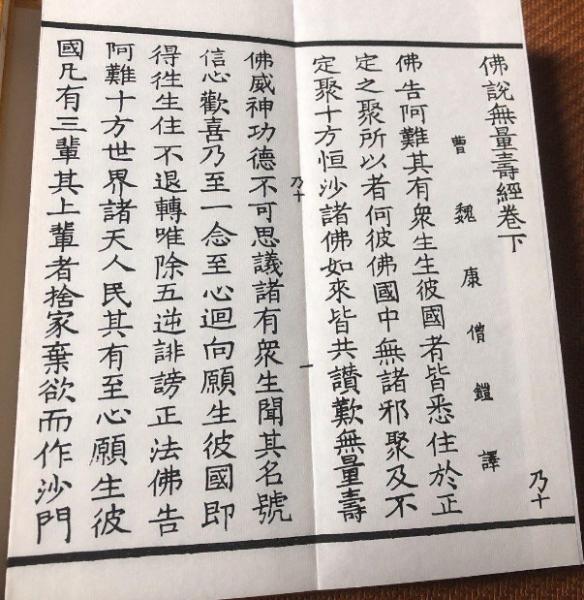 佛說無量壽經卷下
曹魏康僧鎧譯
乃十
佛告阿難其有衆生生彼國者皆悉住於正
定之聚所以者何彼佛國中無諸邪聚及不
定聚十方恒沙諸佛如來皆共讃歎無量壽
乃十
一
佛威神功德不可思議諸有衆生聞其名號
信心歡喜乃至一念至心迴向願生彼國即
得徃生住不退轉唯除五逆誹謗正法佛告
阿難十方世界諸天人民其有至心願生彼
國凡有三輩其上輩者捨家棄欲而作沙門